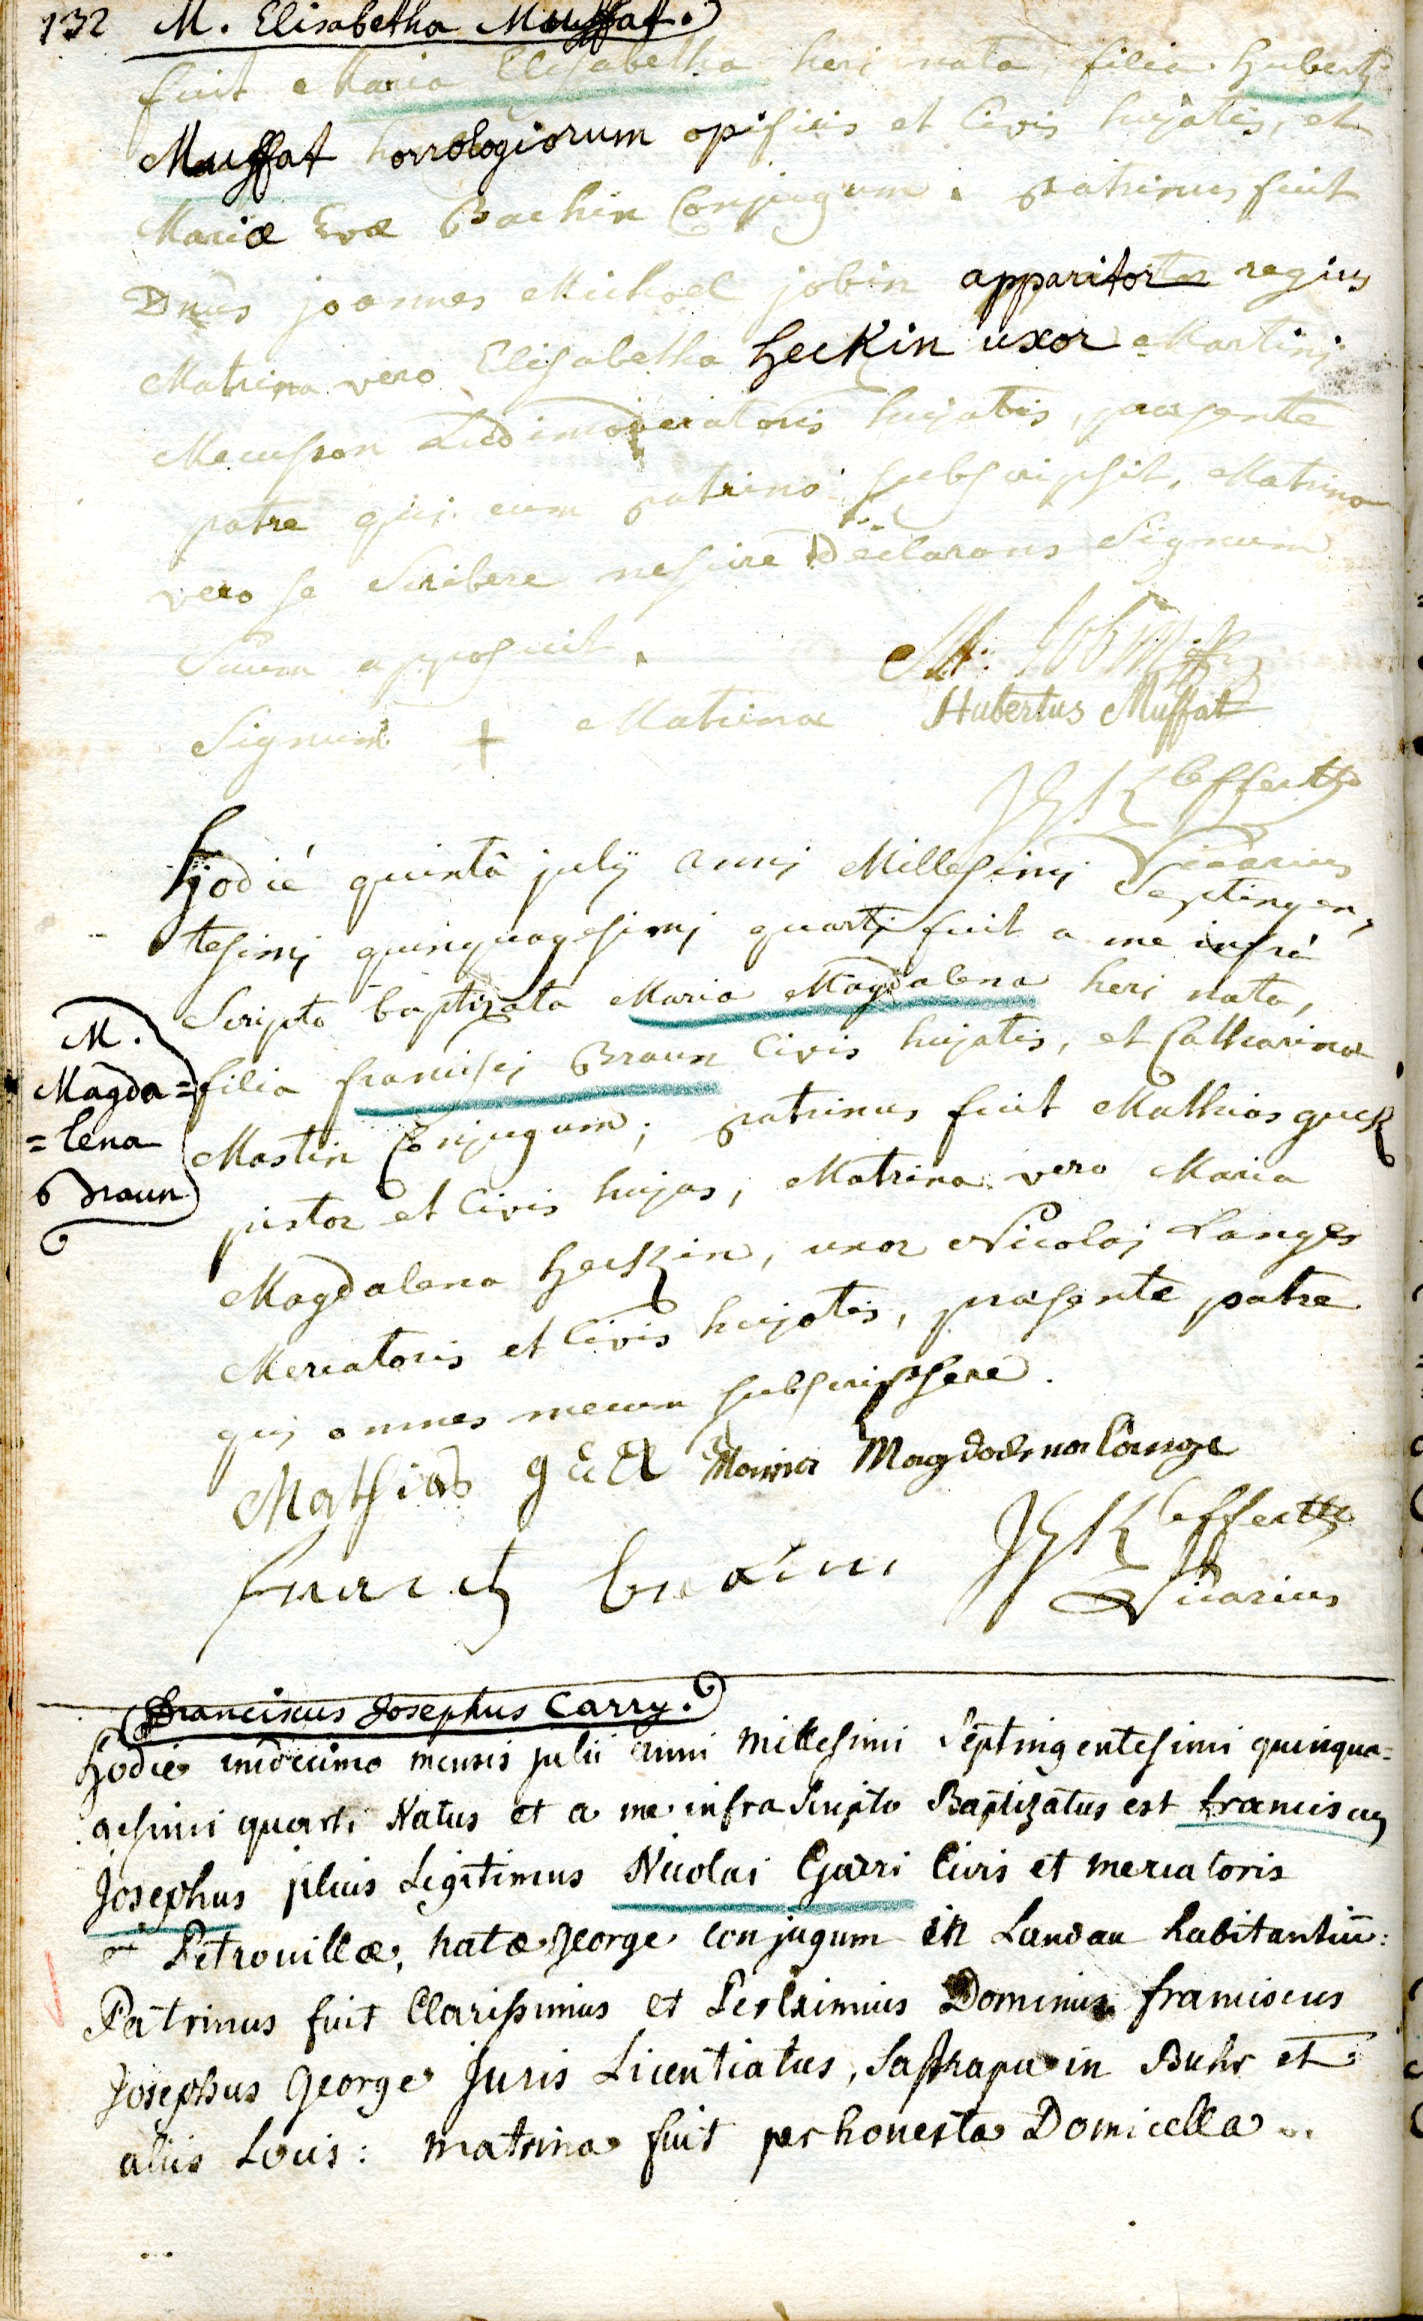 132 M. Elisabetha Muffat.
fuit Maria Elisabetha heri nata filia Huberti
Muffat horrologiorum opificis et Civis hujatis, et
Mariæ Evæ Bachin Conjugum. patrinus fuit
Dnus joannes Michael jobin apparitor regius
Matrina vero Elisabetha Heckin uxor Martinj
Meusson Ludimoderatoris hujatis, præsente
patre qui cum patrino subscripsit, Matrina
vero se scribere nescire Declarans Signum
Suum apposuit.
M: Jobin
Signum + Matrinæ Hubertus Muffat
JG Kleffertz
Vicarius
Hodié quintâ julÿ annj Millesimj Septingen,
tesimj quinquagesimj quartj fuit a me infrà
Scripto baptizata Maria Magdalena heri nata,
M.
Magda=
=lena
Braun
filia francisej Braun Civis hujatis, et Catharinæ
Mastin Conjugum; patrinus fuit Mathias guck
pistor et Civis hujas, Matrina vero Maria
Magdalena Heckin, uxor Nicolaj Langes
Mercatoris et Civis hujatis, præsente patre
qui omnes mecum subscripsere.
Mathias Maria Magdalena Lange
JG Kleffertz
Vicarius
Franciscus Josephus Carry.
Hodie undecimo mensis julii anni millesimi Septingentesimi quinqua=
gesimi quarti Natus et a me infra Scripto Baptizatus est franciscus
Josephus filius Legitimus Nicolai Garri Civis et mercatoris
et Petronillæ, natæ george conjugum in Landau habitantiu̅:
Patrinus fuit Clarissimus et Dominus franciscus
Josephus George Juris Licentiatus, Satrapa in Buhr et
aliis Locis: matrina fuit perhonesta Domicella ..